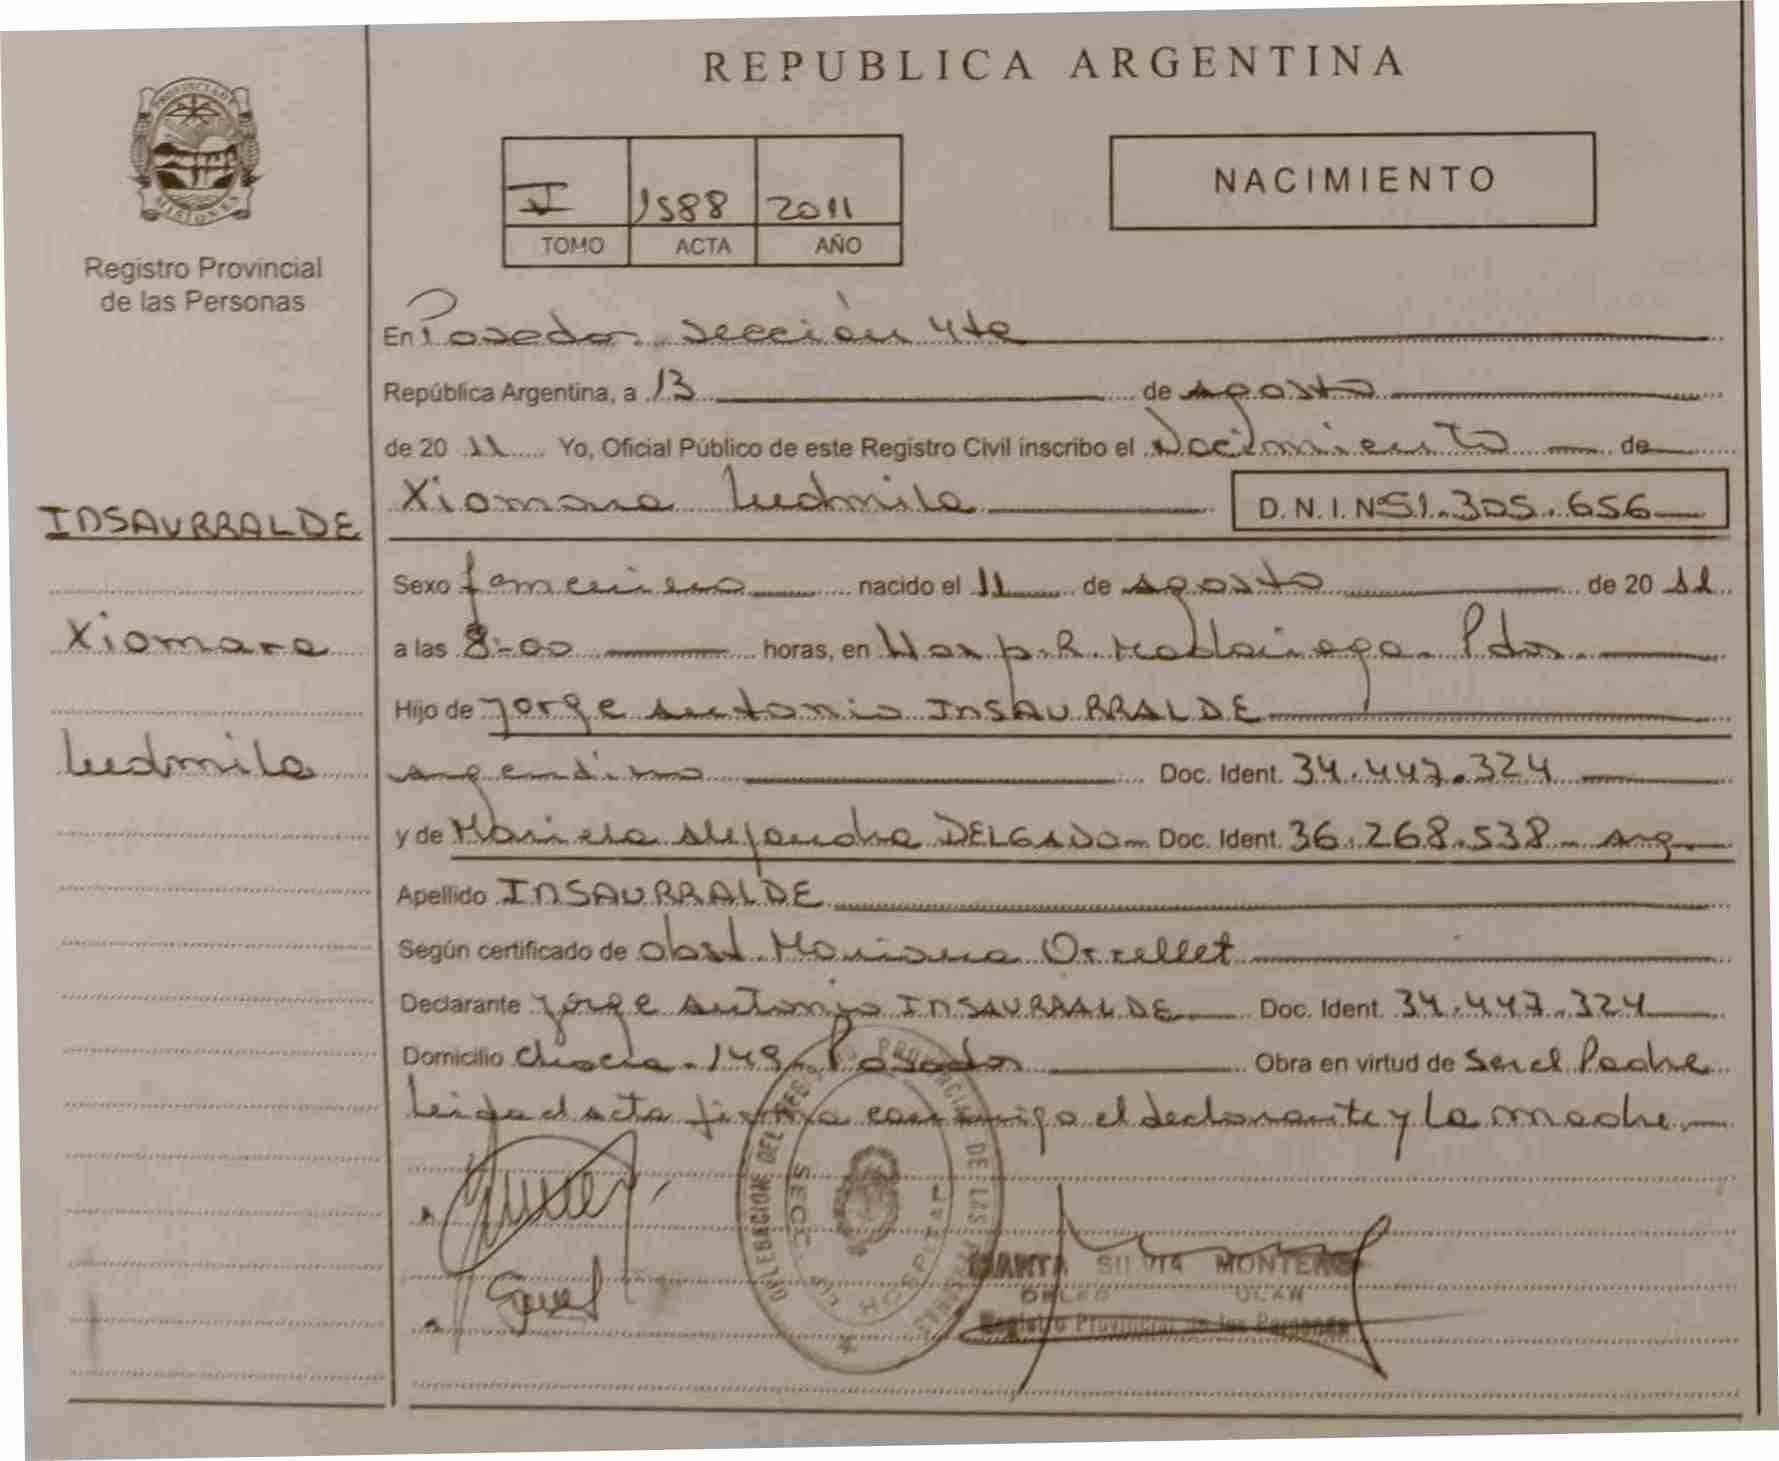 REPUBLICA ARGENTINA
PROVINCIA DE
MISIONES
Registro Provincial
de las Personas
1588 2011
TOMO ACTA AÑO
NACIMIENTO
INSAURRALDE
Xiomara
Ludmila
En Posadas sección 4ta
República Argentina, a 13 de agosto
de 20 11 Yo, Oficial Público de este Registro Civil inscribo el Nacimiento de
Xiomara Ludmila D. N. I. Nº 51.305.656
Sexo femenino nacido el 11 de agosto de 20 11
a las 8:00 horas, en Hosp. R. Madariaga. Pdas.
Hijo de Jorge Antonio INSAURRALDE
argentino Doc. Ident. 34.447.324
y de Mariela Alejandra DELGADO Doc. Ident. 36.268.538 - arg
Apellido INSAURRALDE
Según certificado de obst. Mariana
Declarante Jorge Antonio INSAURRALDE Doc. Ident. 34.447.324
Domicilio chacra 149 Posadas Obra en virtud de Ser el Padre
Leida el acta firma conmigo el declarante y la madre
DELEGACION DEL REGISTRO PROVINCIAL DE LAS PERSONAS
SECC. HOSPITAL
MARTA SILVIA MONTERO
Registro Provincial de las Personas